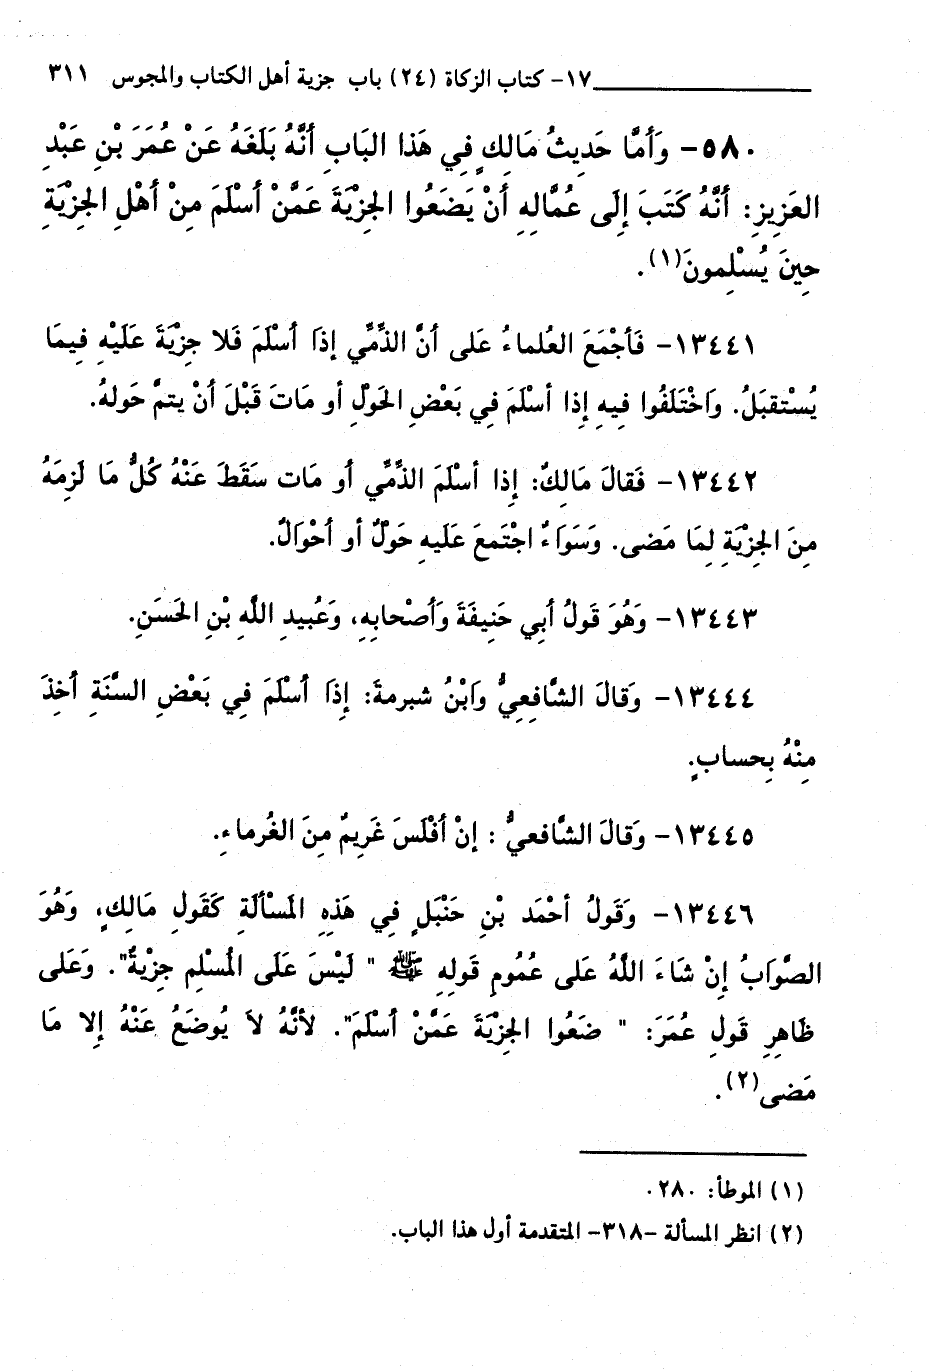 ١٧- كتاب الزكاة (٢٤) باب جزية أهل الكتاب والمجوس ٣١١
٥٨٠- وَأَمَّا حَدِيثُ مَالِكٍ فِي هَذا البَابِ أَنَّهُ بَلَغَهُ عَنْ عُمَرَ بْنِ عَبْدِ
العَزِيزِ: أَنَّهُ كَتَبَ إِلَى عُمَّالِهِ أَنْ يَضَعُوا الجِزْيَةَ عَمَّنْ أَسْلَمَ مِنْ أَهْلِ الجِزْيَةِ
حِينَ يُسْلِمونَ(١).
١٣٤٤١- فَأَجْمَعَ العُلماءُ عَلى أَنَّ الذِّمِّي إِذَا أَسْلَمَ فَلا جِزْيَةَ عَلَيْهِ فِيمَا
يُسْتقبَلُ. وَاخْتَلَفُوا فِيهِ إِذا أسْلَمَ فِي بَعْضِ الحَوْلِ أو مَاتَ قَبْلَ أنْ يتمَّ حَولهُ.
١٣٤٤٢- فَقالَ مَالِكٌ: إِذا أسْلَمَ الذِّمِّي أو مَات سَقَطَ عَنْهُ كُلُّ مَا لَزِمَهُ
مِنَ الجِزْيَةِ لِمَا مَضى. وَسَوَاءٌ اجْتَمعَ عَلَيهِ حَوْلٌ أو أحْوَالٌ.
١٣٤٤٣- وَهُوَ قَولُ أبي حَنِيفَةَ وَأصْحابِهِ، وَعُبيدِ اللَّهِ بْنِ الحَسَنِ.
١٣٤٤٤- وَقالَ الشَّافِعِيُّ وَابْنُ شبرمةَ: إِذَا أَسْلَمَ فِي بَعْضِ السَّنَةِ أُخِذَ
مِنْهُ بِحسابٍ.
١٣٤٤٥- وَقالَ الشَّافعيُّ : إنْ أفْلَسَ غَرِيمٌ مِنَ الغُرماءِ.
١٣٤٤٦- وَقَولُ أحْمَدَ بْنِ حَنْبَلٍ فِي هَذِهِ المَسْألَةِ كَقَولِ مَالِكٍ، وَهُوَ
الصَّوَابُ إِنْ شَاءَ اللَّهُ عَلى عُمُومِ قَولِهِ ﷺ " لَيْسَ عَلَى المُسْلِمِ جِزْيةٌ". وَعَلى
ظَاهِرِ قَولِ عُمَرَ: " ضَعُوا الجِزْيَةَ عَمَّنْ أسْلَمَ". لأنَّهُ لاَ يُوضَعُ عَنْهُ إلا مَا
مَضى(٢).
(١) الموطأ: ٢٨٠.
(٢) انظر المسألة -٣١٨- المتقدمة أول هذا الباب.